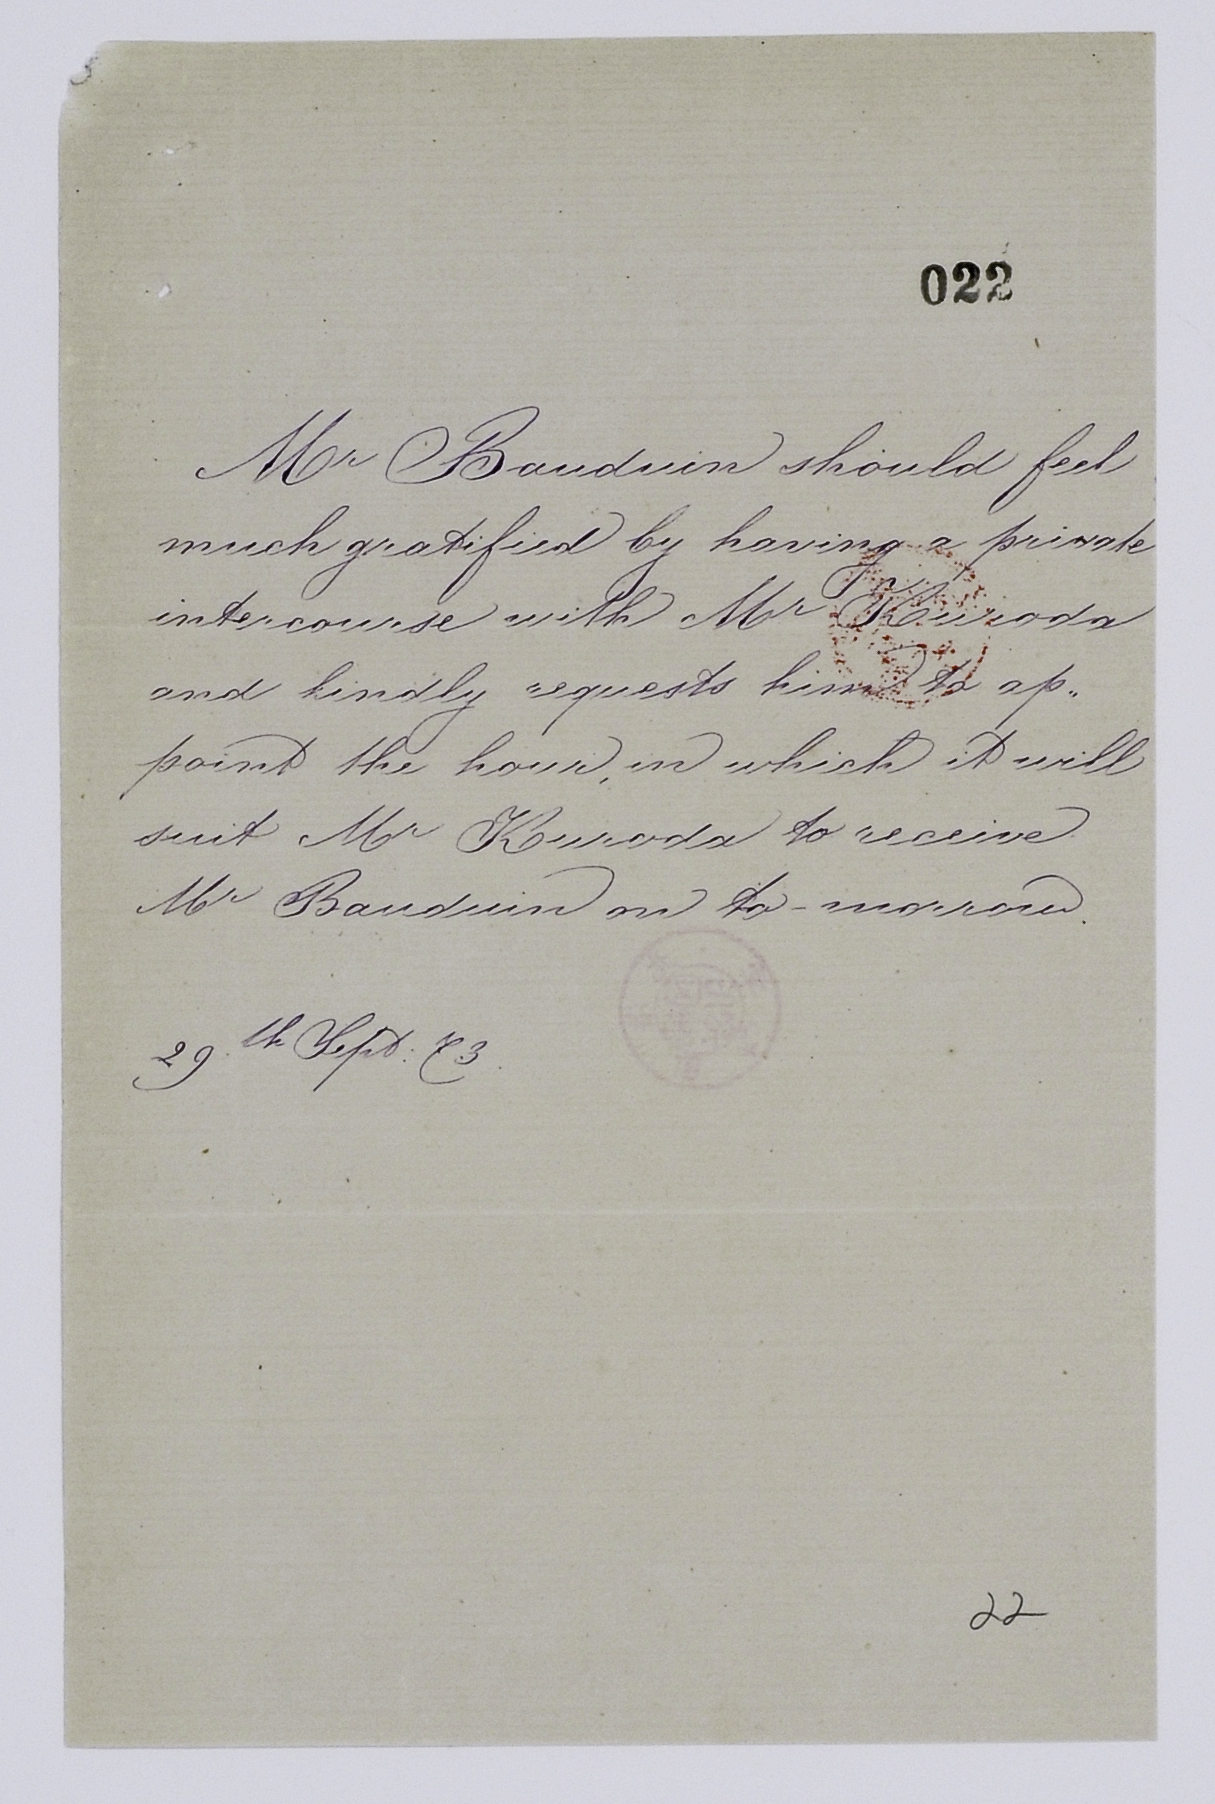 022
Mr Bauduin should feel
much gratified by having a private
intercourse with Mr Kuroda
and kindly requests him to ap„
point the hour, in which it will
suit Mr Kuroda to receive
Mr Bauduin on to-morrow.
29th Sept: 73.
22